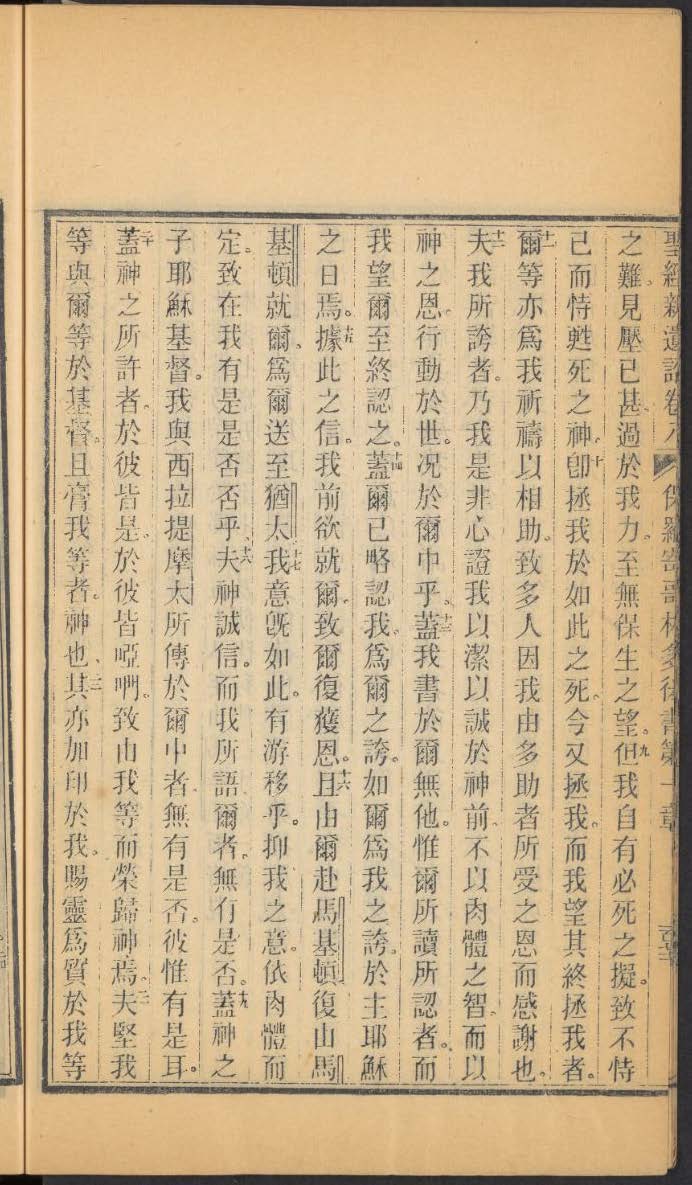 聖經新遺詔卷八 保羅寄哥林多後書第一章
之難。見壓已甚。過於我力。至無保生之望。九但我自有必死之擬。致不恃
己而恃甦死之神。十卽拯我於如此之死。今又拯我。而我望其終拯我者。
十一爾等亦爲我祈禱以相助。致多人因我由多助者所受之恩而感謝也。
十二夫我所誇者。乃我是非心證我以潔以誠於神前、不以肉體之智、而以
神之恩。行動於世。况於爾中乎。十三蓋我書於爾無他。惟爾所讀所認者。而
我望爾至終認之。十四蓋爾已略認我。爲爾之誇。如爾爲我之誇。於主耶穌
之日焉。十五據此之信。我前欲就爾。致爾復獲恩。十六且由爾赴馬基頓復由馬
基頓就爾、爲爾送至猶太。十七我意旣如此。有游移乎。抑我之意。依肉體而
定。致在我有是是否否乎。十八夫神誠信。而我所語爾者。無有是否。十九蓋神之
子耶穌基督。我與西拉提摩太所傳於爾中者、無有是否。彼惟有是耳。
二十蓋神之所許者。於彼皆是。於彼皆啞㖿。致由我等而榮歸神焉。二一夫堅我
等與爾等於基督。且膏我等者。神也、二二其亦加印於我。賜靈爲質於我等